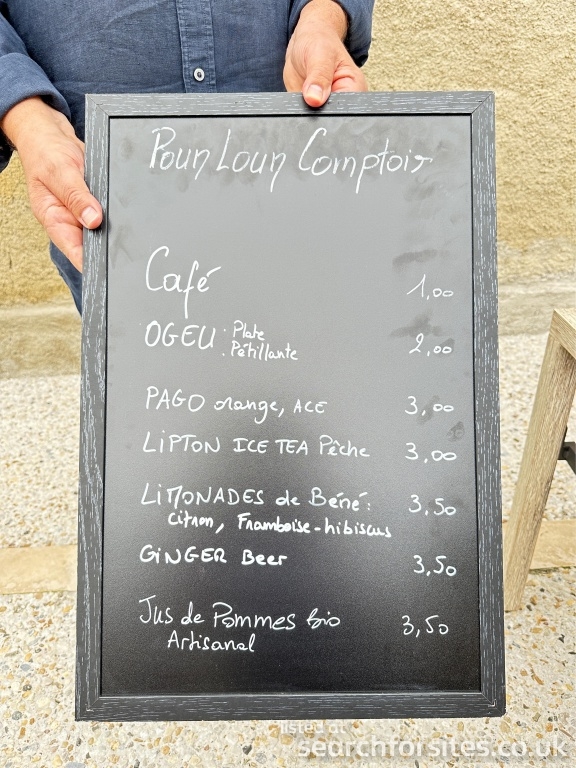 Poun Loun Comptoir
Café 1,00
OGEU . Plate 2,00
. Pétillante
PAGO orange, ACE 3,00
LIPTON ICE TEA Pêche 3,00
LIMONADES de Béné : 3,50
citron, Framboise-hibiscus
GINGER Beer 3,50
Jus de Pommes bio 3,50
Artisanal
listed at
searchforsites.co.uk